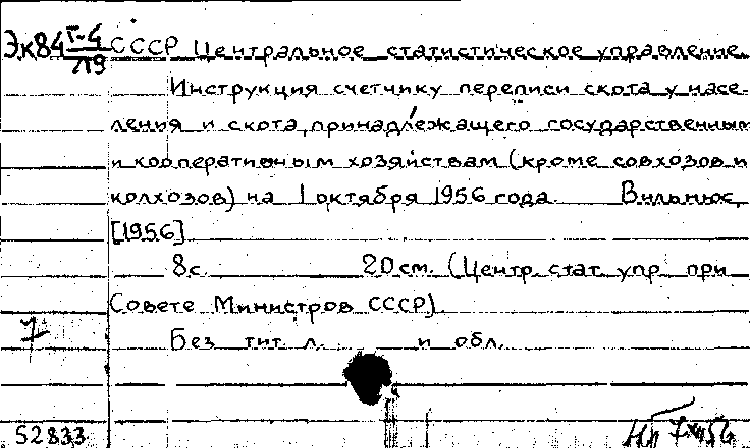 Эк84 Г-4/119 СССР Центральное статистическое управление.
Инструкция счетчику переписи скота у насе-
ления и скота, принадлежащего государственным
и кооперативным хозяйствам (кроме совхозов и
колхозов) на 1 октября 1956 года. Вильнюс,
[1956]
8 с. 20 см. (Центр. стат. упр. при
Совете Министров СССР).
7
Без тит. л. и обл.
52833